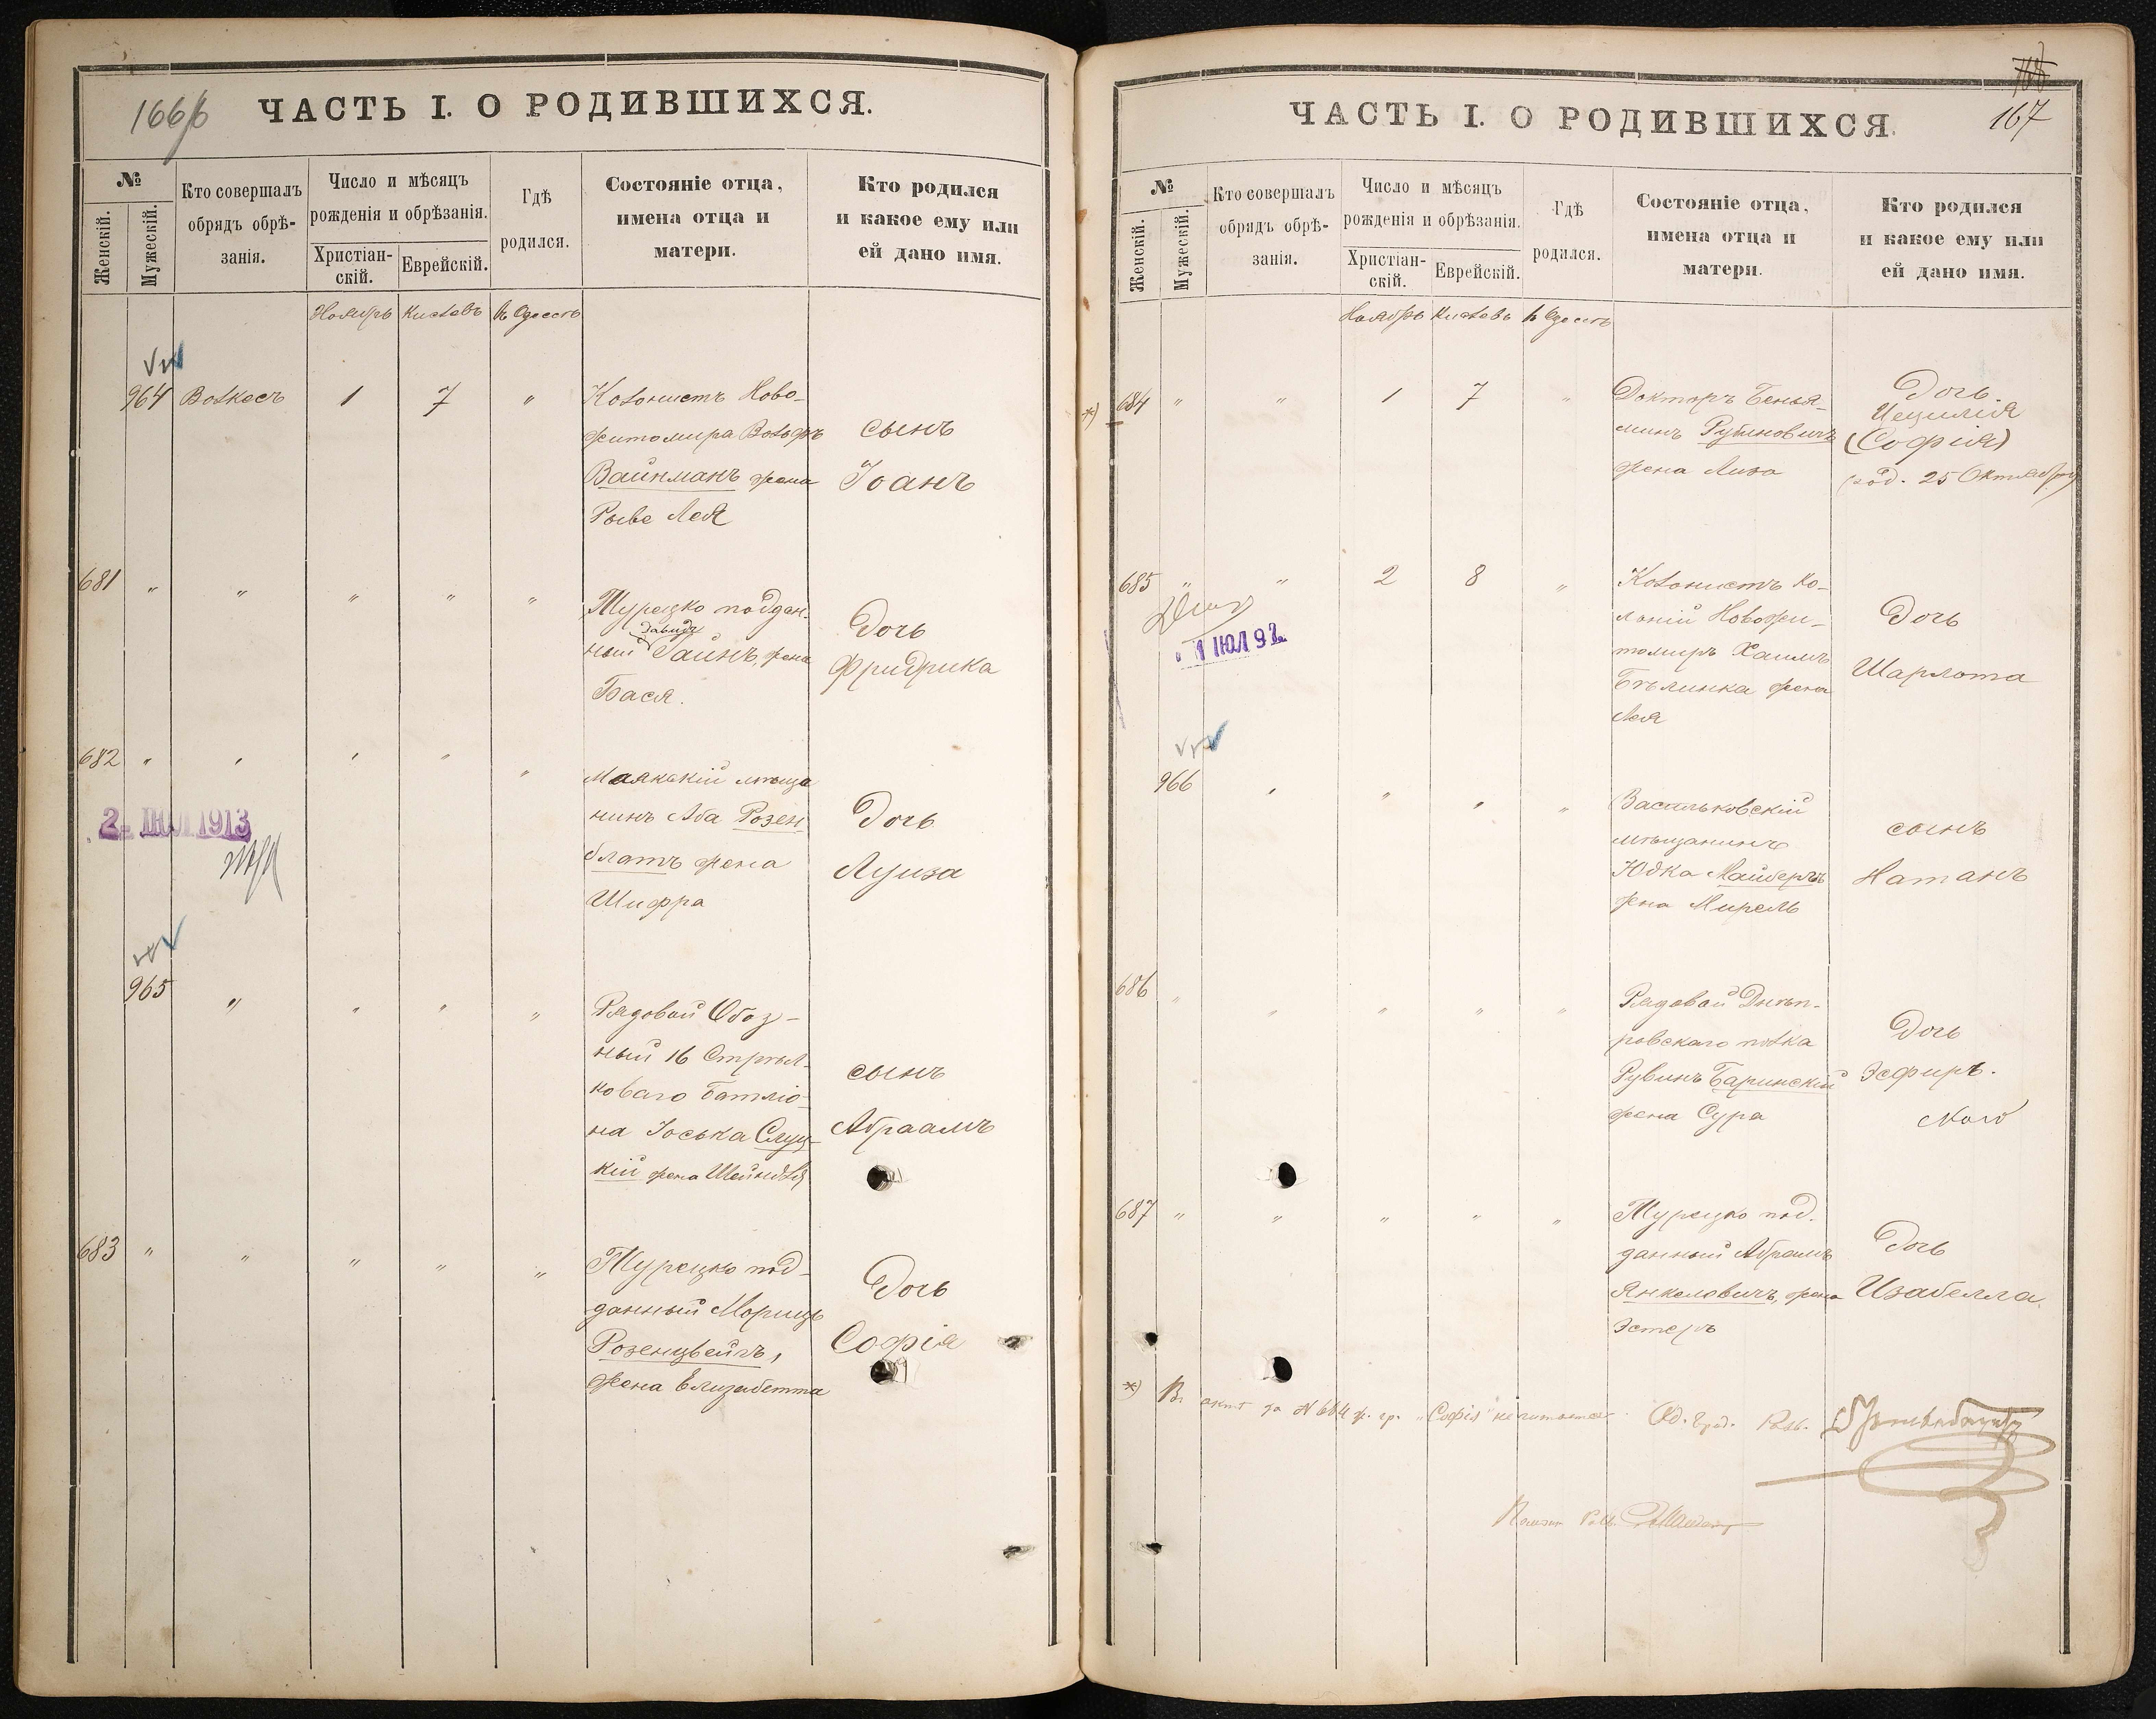 166
ЧАСТЬ I. О РОДИВШИХСЯ.
№
Женскій.
Мужескій.
Кто совершалъ
обрядъ обрѣ-
занія.
Число и мѣсяцъ
рожденія и обрѣзанія.
Христіан-
скій.
Еврейскій.
Гдѣ
родился.
Состояніе отца,
имена отца и
матери.
Кто родился
и какое ему или
ей дано имя.
Ноябрь Кислевъ въ Одессѣ
964 1 7 "
Колонистъ Ново-
житомира Вольфъ
Вайнманъ жена
Рывe Лея
сынъ
Іоанъ
681 " " " " "
Турецко поддан-
Давидъ
ный Гаинъ, жена
Бася.
Дочь
Фридрика
682 " " " " "
2- ІЮЛ 1913
Маякскій мѣща
нинъ Аба Розен
блатъ жена
Шифра
Дочь
Луиза
965 " " " "
Рядовой Обоз-
ный 16 Стрѣл-
коваго Баталіо-
на Іоська Слуц-
кій жена Шейндля
сынъ
Абраамъ
683 " " " " "
Турецко под-
данный Морицъ
Розенцвейгъ,
жена Елизабетта
Дочь
Софія
167
ЧАСТЬ I. О РОДИВШИХСЯ.
№
Женскій.
Мужескій.
Кто совершалъ
обрядъ обрѣ-
занія.
Число и мѣсяцъ
рожденія и обрѣзанія.
Христіан-
скій.
Еврейскій.
Гдѣ
родился.
Состояніе отца,
имена отца и
матери.
Кто родился
и какое ему или
ей дано имя.
Ноябрь Кислевъ въ Одессѣ
*) 684 " " 1 7 "
Докторъ Бенья-
минъ Рубиновичъ
жена Лиза
Дочь
Цецилія
(Софія)
(род. 25 Октября)
685 " " 2 8 "
1 ІЮЛ 92
Колонистъ Ко-
лоній Новожи-
томиръ Хаимъ
Бѣлинка жена
Лея
Дочь
Шарлота
966 " " " "
Васильковскій
мѣщанинъ
Юдка Майбергъ
жена Мирель
сынъ
Натанъ
686 " " " " "
Рядовой Днѣп-
ровскаго полка
Рувинъ Баринскій
жена Сура
Дочь
Эсфирь.
687 " " " " "
Турецко под.
данный Абрамъ
Янкеловичъ, жена
Эстеръ
Дочь
Изабелла.
*) Въ актѣ за № 684 ж. гр. "Софія" не читается. Од. Гор. Равв.